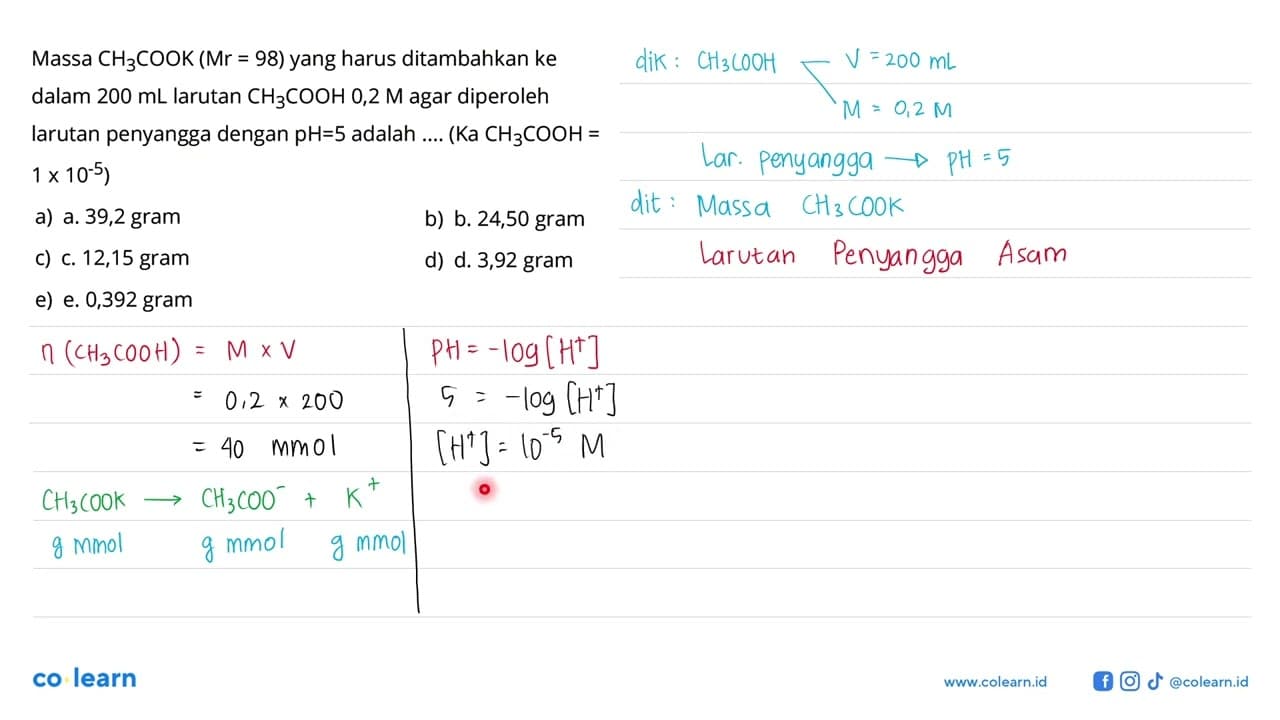 Massa CH₃COOK (Mr = 98) yang harus ditambahkan ke
dalam 200 mL larutan CH₃COOH 0,2 M agar diperoleh
larutan penyangga dengan pH=5 adalah .... (Ka CH₃COOH =
1 x 10⁻⁵)
a) a. 39,2 gram
b) b. 24,50 gram
c) c. 12,15 gram
d) d. 3,92 gram
e) e. 0,392 gram
dik : CH₃COOH V = 200 mL
M = 0,2 M
Lar. penyangga → pH = 5
dit : Massa CH₃COOK
Larutan Penyangga Asam
n (CH₃COOH) = M x V
= 0,2 x 200
= 40 mmol
CH₃COOK → CH₃COO⁻ + K⁺
g mmol g mmol g mmol
PH = -log [H⁺]
5 = -log [H⁺]
[H⁺] = 10⁻⁵ M
co learn
www.colearn.id
@colearn.id